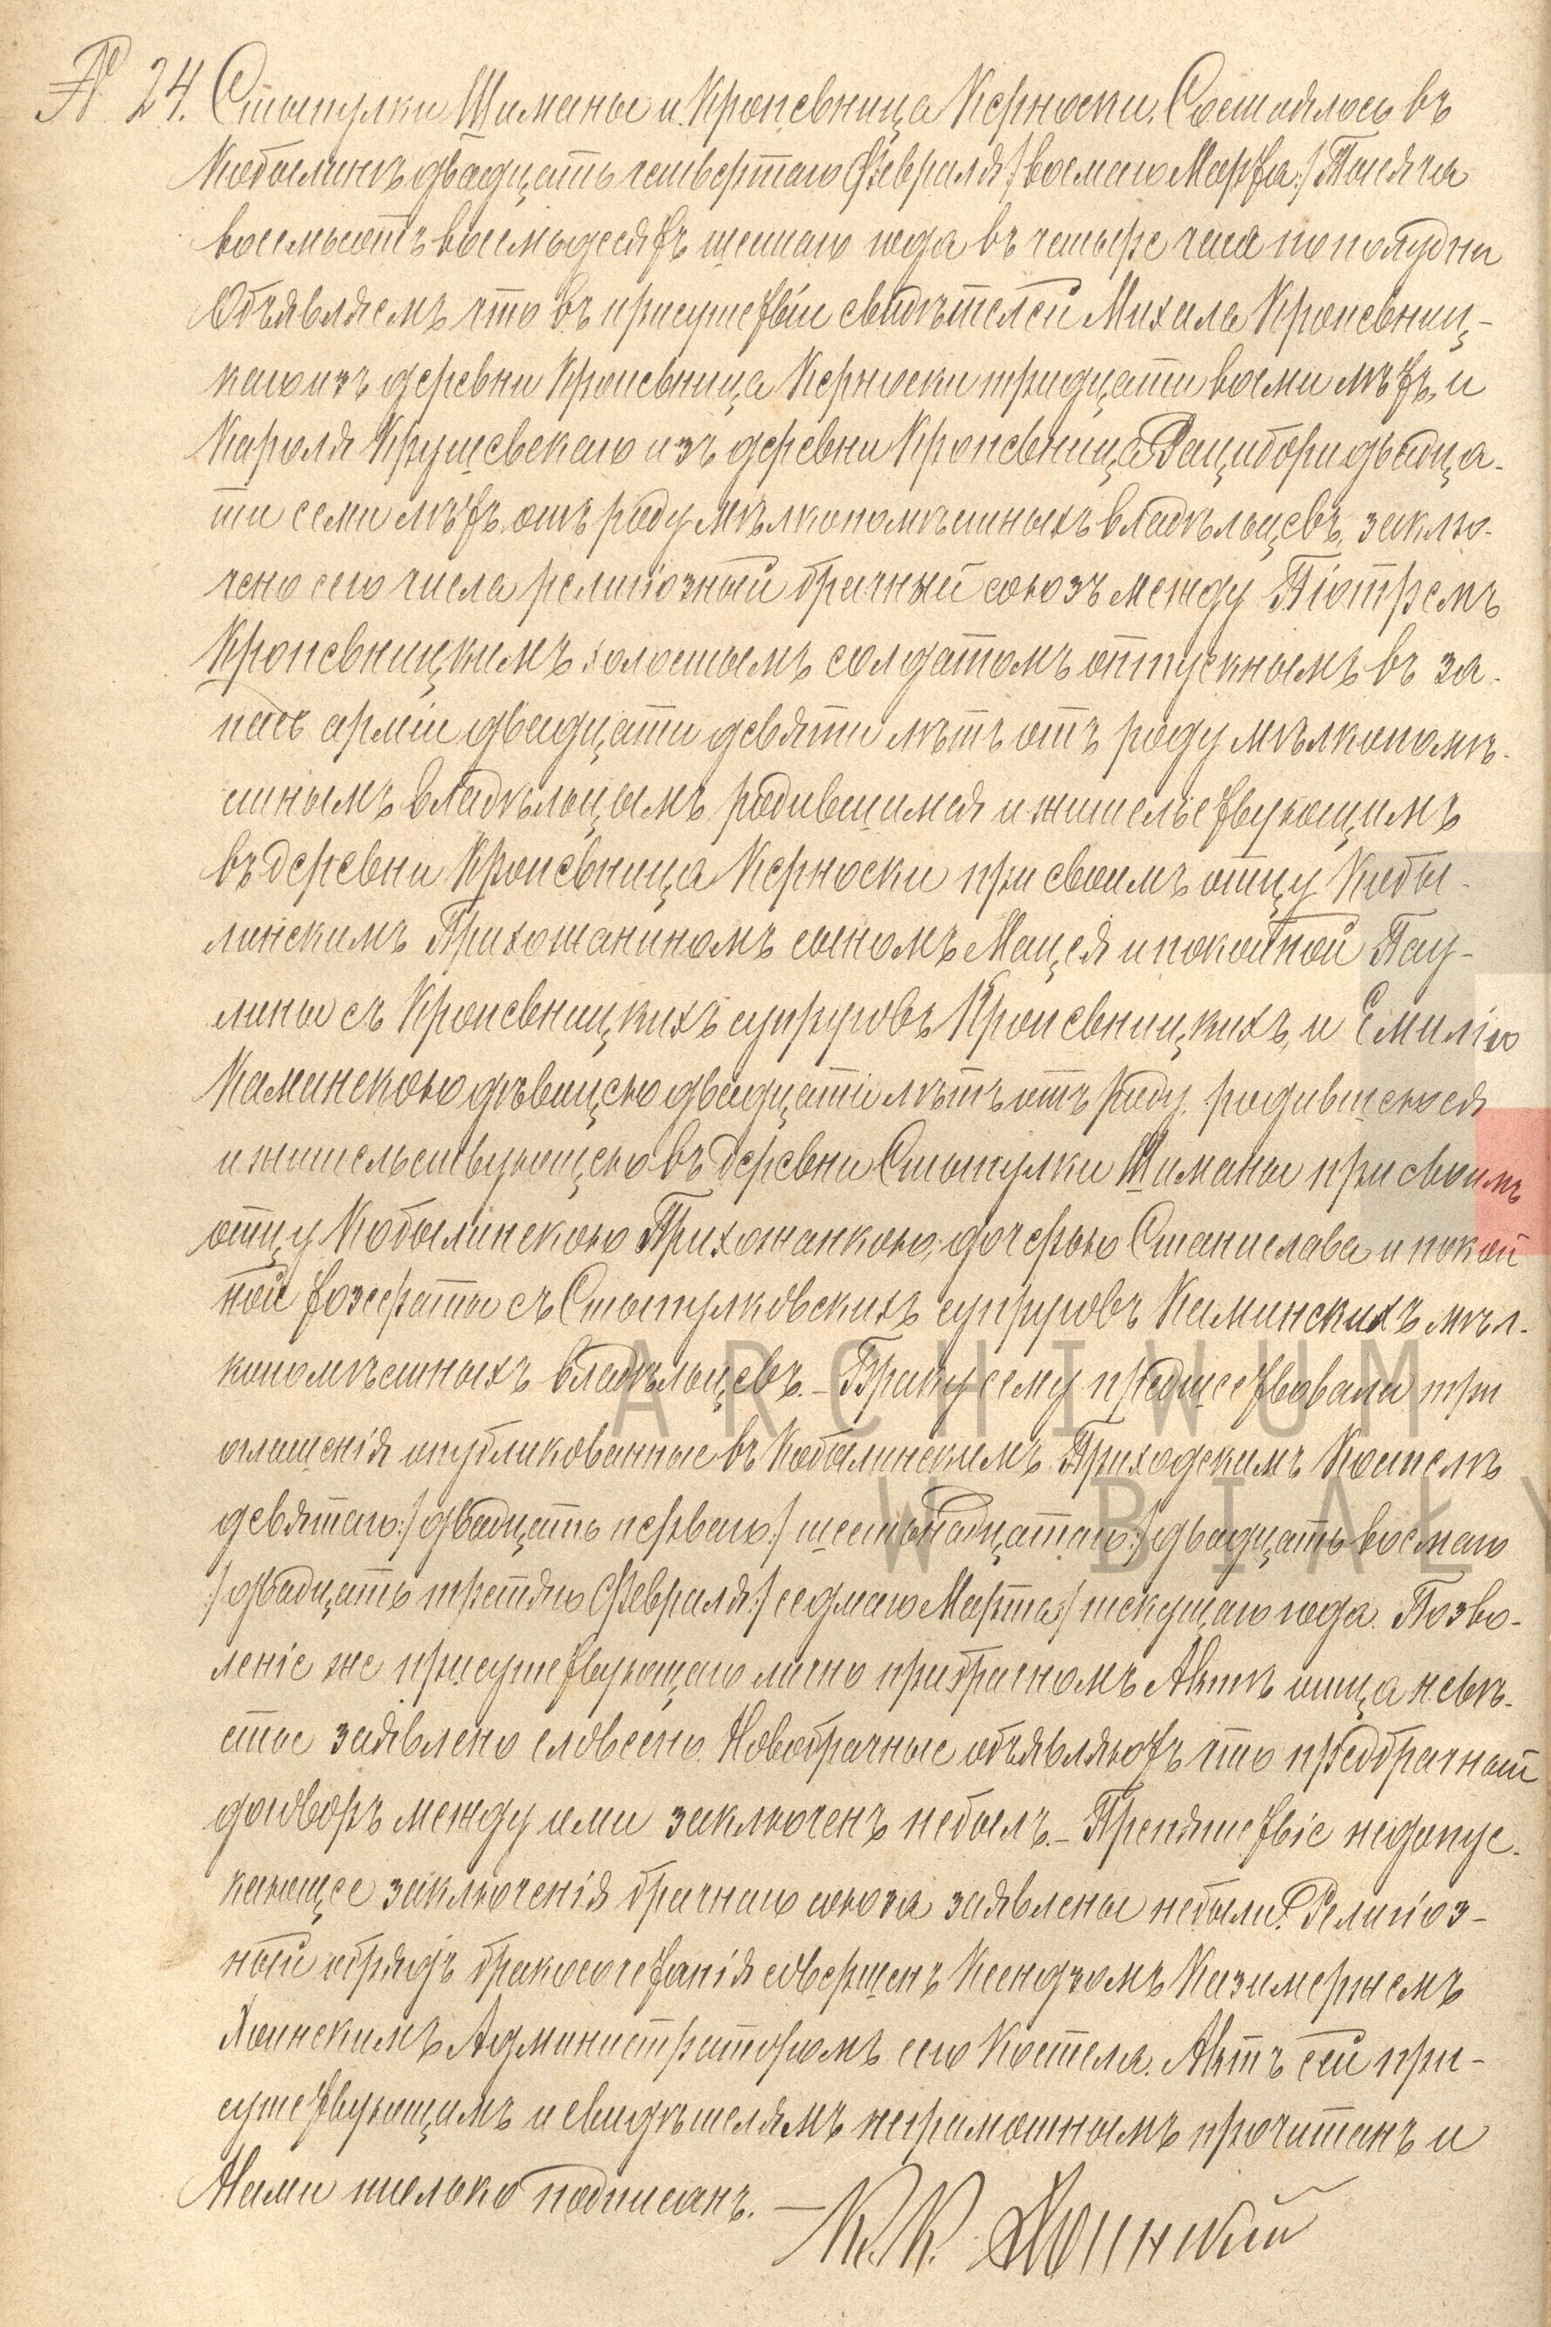 № 24. Стыпулки Шиманы и Кропевница Керноски. Состоялось въ
Кобылинѣ двадцать четвертаго Февраля /: восмаго Марта :/ Тысяча
восемьсотъ восемьдесятъ шестаго года въ четыре часа пополудни
Объявляемъ что въ присутствіи свидѣтелей Михала Кропевниц-
каго изъ деревни Кропевница Керноски тридцати восми лѣтъ, и
Кароля Крушевскаго изъ деревни Кропевница Рацибори двадца-
ти семи лѣтъ отъ роду мѣлкопомѣстныхъ владѣльцевъ, заклю-
чено сего числа религіозный брачный союзъ между Піотремъ
Кропевницкимъ холостымъ солдатомъ отпускнымъ въ за-
пасъ арміи двадцати девяти лѣтъ отъ роду мѣлкопомѣ-
стнымъ владѣльцымъ родившимся и жительствующимъ
въ деревни Кропевница Керноски при своимъ отцу Кобы-
линскимъ Прихожаниномъ сыномъ Мацея и покойной Пау-
лины съ Кропевницкихъ супруговъ Кропевницкихъ, и Емиліею
Каминскою дѣвицею двадцати лѣтъ отъ роду, родившеюся
и жительствующею въ деревни Стыпулки Шиманы при своимъ
отцу Кобылинскою Прихожанкою, дочерью Станислава и покой
ной Іозефаты съ Стыпулковскихъ супруговъ Каминскихъ мѣл-
копомѣстныхъ владѣльцевъ. – Браку сему предшествовали три
оглашенія опубликованные въ Кобылинскимъ Приходскимъ Костелѣ
девятаго /: двадцать перваго :/ шестьнадцатаго /: двадцать восмаго
/: двадцать третяго Февраля :/ седмаго Марта :/ текущаго года. Позво-
леніе же присутствующаго лично при брачномъ Актѣ отца невѣ-
стые заявлено словесно. Новобрачные объявляютъ что предбрачный
договоръ между ими заключенъ небылъ. – Препятствіе недопус-
кающее заключенія брачнаго союза заявлены небыли. Религіоз-
ный обрядъ бракосочетанія совершенъ Ксендзомъ Казимержемъ
Хоинскимъ Администраторомъ сего Костела. Актъ сей при-
сутствующимъ и свидѣтелямъ неграмотнымъ прочитанъ и
Нами только подписанъ. – К. К. Хоинскій
ARCHIWUM
W BIAŁY